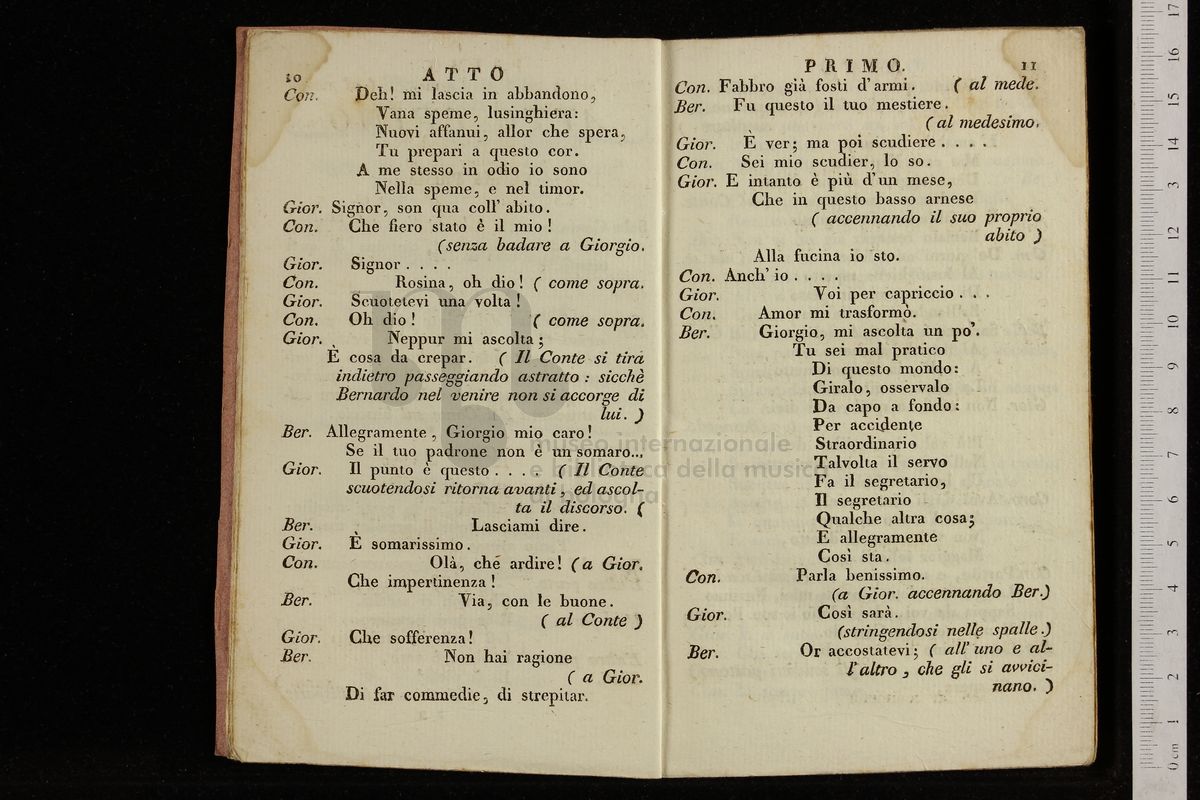 10
ATTO
Con. Deh! mi lascia in abbandono,
Vana speme, lusinghiera:
Nuovi affanni, allor che spera,
Tu prepari a questo cor.
A me stesso in odio io sono
Nella speme, e nel timor.
Gior. Signor, son qua coll' abito.
Con. Che fiero stato è il mio!
(senza badare a Giorgio.
Gior. Signor . . . .
Con. Rosina, oh dio! ( come sopra.
Gior. Scuotetevi una volta!
Con. Oh dio! ( come sopra.
Gior. Neppur mi ascolta;
È cosa da crepar. ( Il Conte si tira
indietro passeggiando astratto : sicchè
Bernardo nel venire non si accorge di
lui. )
Ber. Allegramente, Giorgio mio caro!
Se il tuo padrone non è un somaro...
Gior. Il punto è questo . . . . ( Il Conte
scuotendosi ritorna avanti, ed ascol-
ta il discorso. (
Ber. Lasciami dire.
Gior. È somarissimo.
Con. Olà, ché ardire! (a Gior.
Che impertinenza!
Ber. Via, con le buone.
( al Conte )
Gior. Che sofferenza!
Ber. Non hai ragione
( a Gior.
Di far commedie, di strepitar.
PRIMO.
11
Con. Fabbro già fosti d'armi. ( al mede.
Ber. Fu questo il tuo mestiere.
(al medesimo.
Gior. È ver; ma poi scudiere . . . .
Con. Sei mio scudier, lo so.
Gior. E intanto è più d'un mese,
Che in questo basso arnese
( accennando il suo proprio
abito )
Alla fucina io sto.
Con. Anch' io . . . .
Gior. Voi per capriccio . . .
Con. Amor mi trasformò.
Ber. Giorgio, mi ascolta un po'.
Tu sei mal pratico
Di questo mondo:
Giralo, osservalo
Da capo a fondo:
Per accidente
Straordinario
Talvolta il servo
Fa il segretario,
Il segretario
Qualche altra cosa;
E allegramente
Così sta.
Con. Parla benissimo.
(a Gior. accennando Ber.)
Gior. Così sarà.
(stringendosi nelle spalle.)
Ber. Or accostatevi; ( all' uno e al-
l'altro, che gli si avvici-
nano. )
museo internazionale
e biblioteca della musica
di bologna
17
16
15
14
13
12
11
10
9
8
7
6
5
4
3
2
1
0 cm